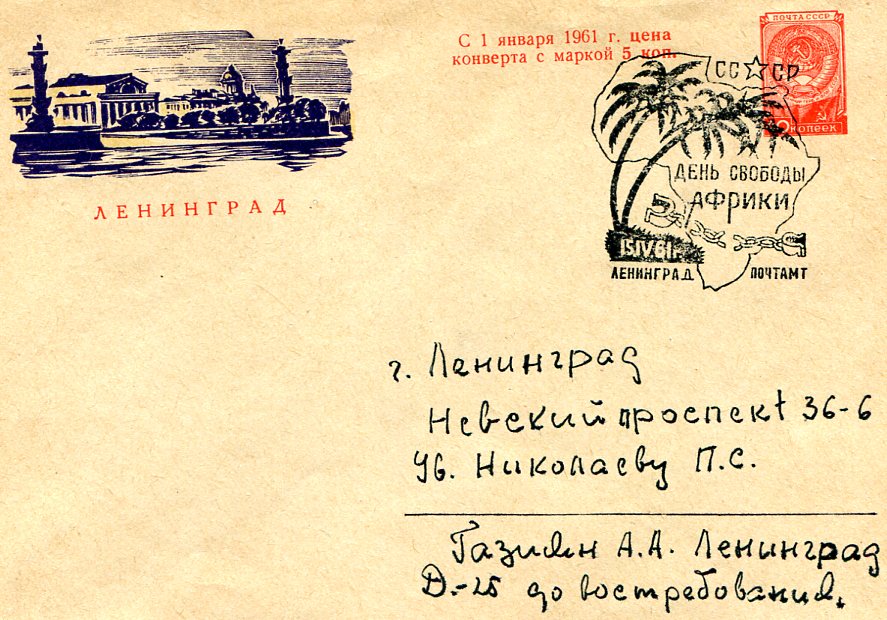 С 1 января 1961 г. цена
конверта с маркой 5 коп.
ПОЧТА СССР
КОПЕЕК
СССР
ДЕНЬ СВОБОДЫ
АФРИКИ
15IV61
ЛЕНИНГРАД ПОЧТАМТ
ЛЕНИНГРАД
г. Ленинград
Невский проспект 36-6
Ув. Николаеву П.С.
Газиян А.А. Ленинград
Д-25 до востребования.